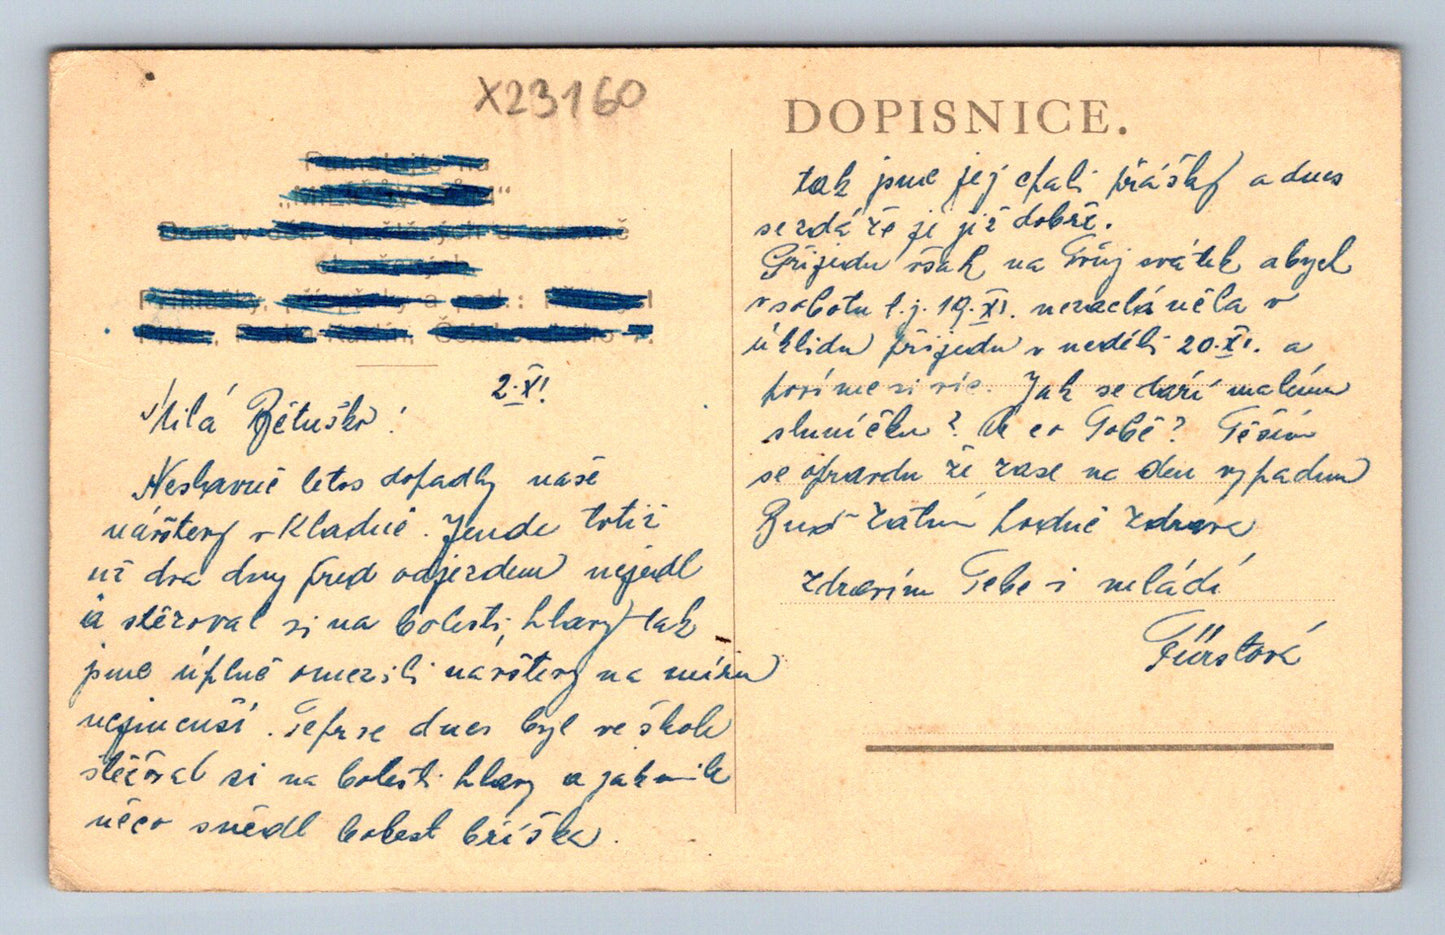 X23160
DOPISNICE.
2.XI.
Milá Bětuško!
Neslavně letos dopadly naše
návštevy v Kladně. Jenda totiž
už dva dny před odjezdem nejedl
a stěžoval si na bolesti hlavy tak
jsme úplně omezili návštevy na míru
nejmenší. Tepr se dnes byl ve škole
stěžoval si na bolesti hlavy a jakmile
něco snědl bolest bříška.
tak jsme jej cpali prášky a dnes
se zdá že je již dobře.
Přijedu však na Tvůj svátek abych
v sobotu t.j. 19.XI. nezacláněla v
úklidu přijedu v neděli 20.XI. a
povíme si víc. Jak se daří malému
sluníčku? A co Tobě? Těším
se opravdu že zase na den vypadnu
Buď zatím hodně zdráva
Zdravím Tebe i mládí
Fürstová